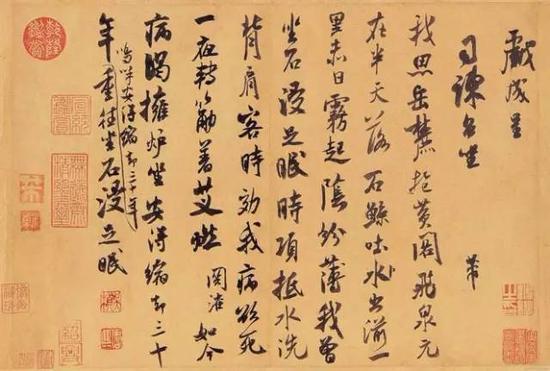 戲成呈
司諫台坐
芾
我思岳麓抱黃閣飛泉元
在半天落石鯨吐水出湔一
里赤日霧起陰紛薄我曾
坐石浸足眠時項抵水洗
背肩客時効我病欲死
一夜轉筋著艾燃 関淮如今
病渴擁爐坐安得縮却三十
嗚呼安得縮却三十年
年重往坐石浸足眠
乾隆鑑賞
紹興